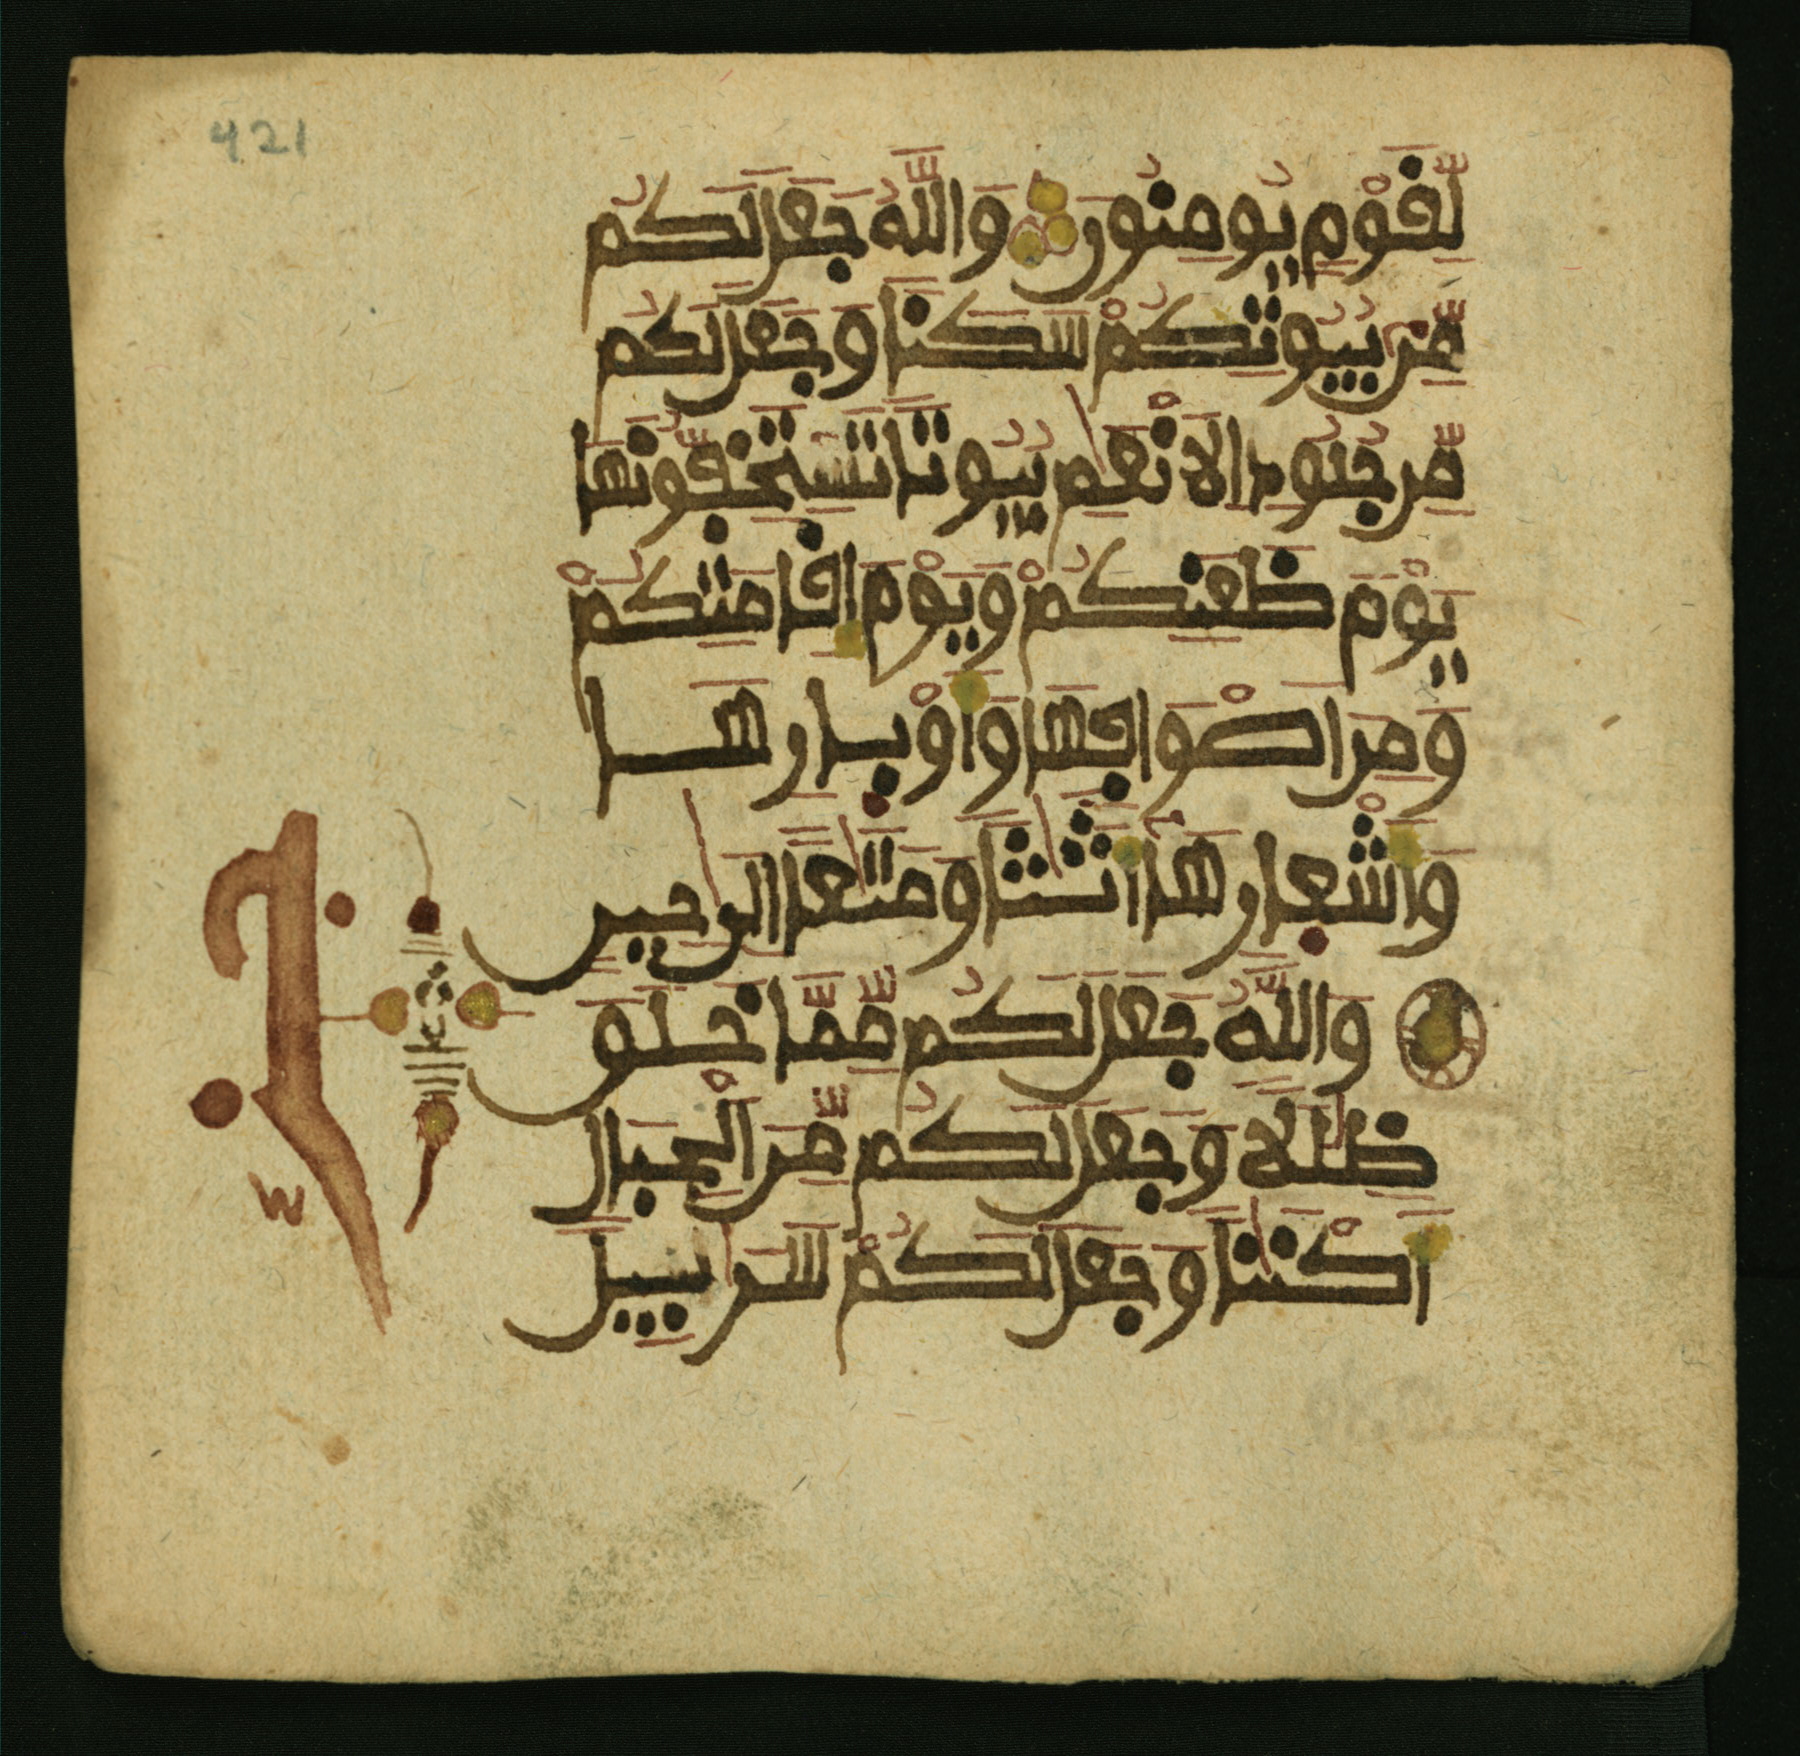 421
لِّقَوْمٍ يُومِنُونَ وَاللَّهُ جَعَلَ لَكُم
مِّنۢ بُيُوتِكُمْ سَكَنًا وَجَعَلَ لَكُم
مِّن جُلُودِ الَانْعَٰمِ بُيُوتًا تَسْتَخِفُّونَهَا
يَوْمَ ظَعَنِكُمْ وَيَوْمَ إِقَامَتِكُمْ
وَمِنَ اصْوَافِهَا وَأَوْبَارِهَا
وَأَشْعَارِهَا أَثَٰثًا وَمَتَٰعًا إِلَىٰ حِينٍ
وَاللَّهُ جَعَلَ لَكُم مِّمَّا خَلَقَ
ظِلَٰلًا وَجَعَلَ لَكُم مِّنَ الْجِبَالِ
أَكْنَٰنًا وَجَعَلَ لَكُمْ سَرَٰبِيلَ